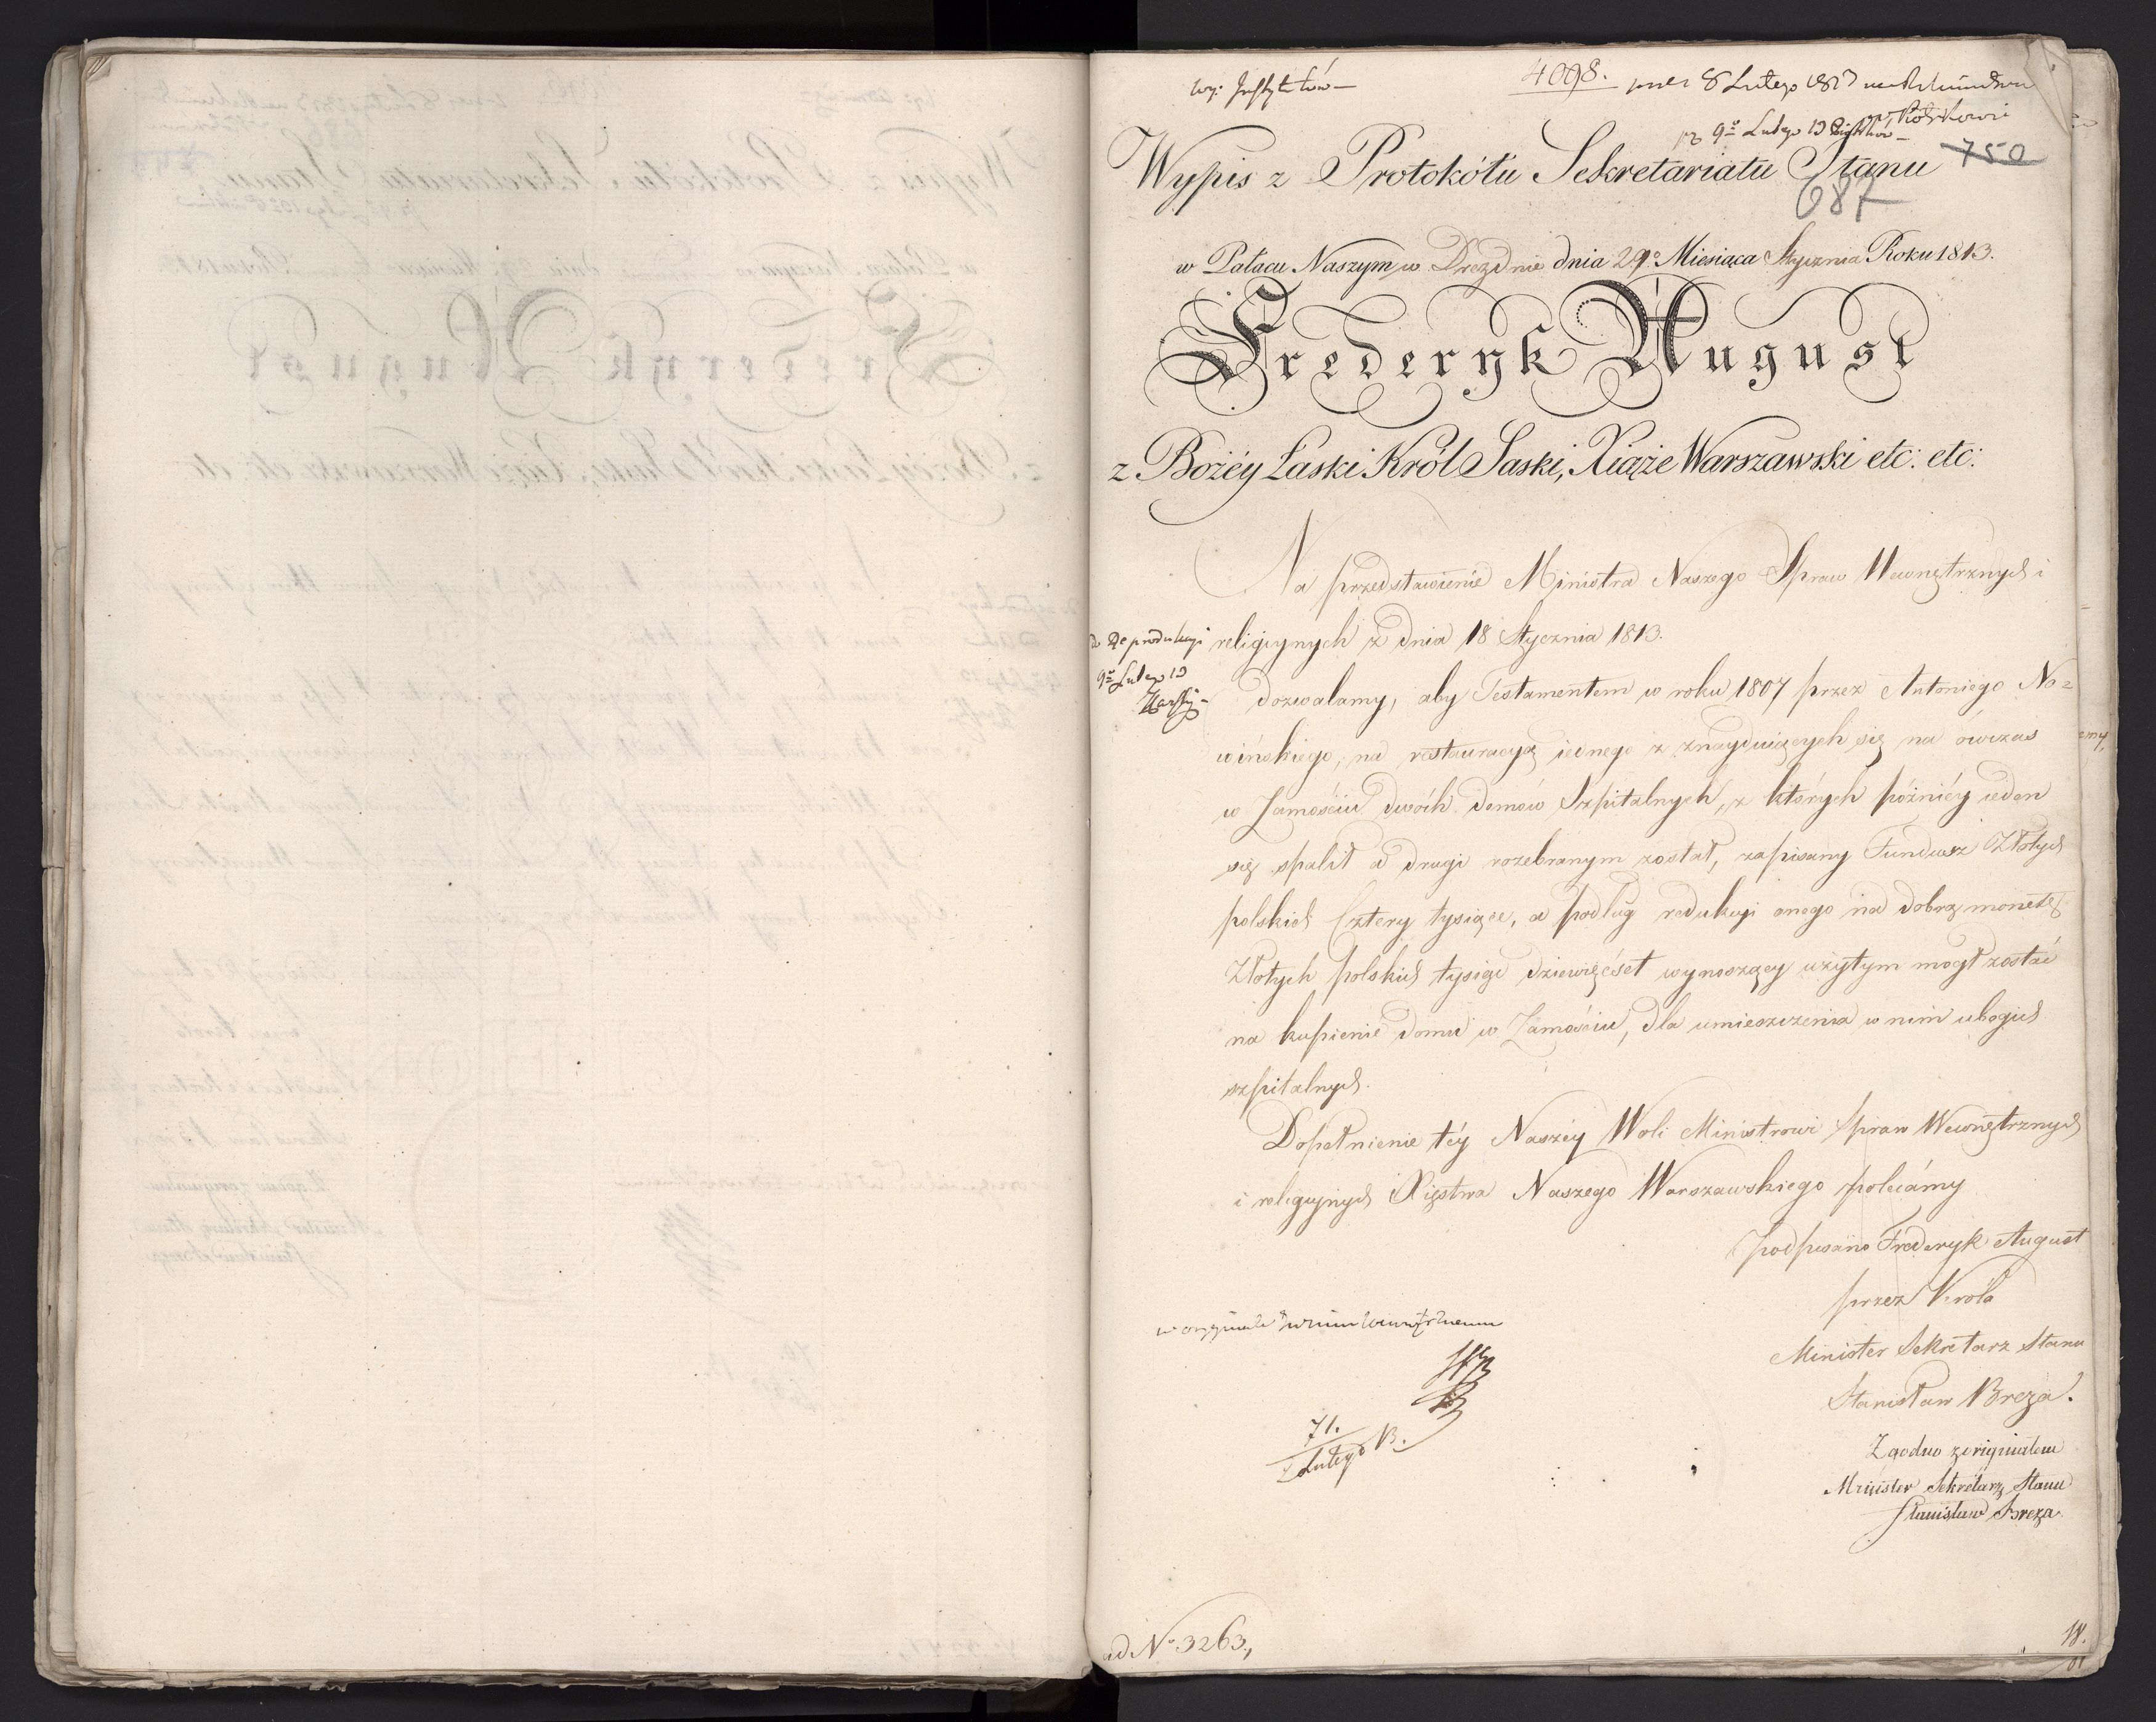 4098.
8 Lutego 1813
9º Lutego 13
750
Wypis z Protokółu Sekretariatu Stanu
687
w Pałacu Naszym w Dreznie dnia 29º Miesiąca Stycznia Roku 1813.
Frederyk August
z Bożéy Łaski Król Saski, Xiąże Warszawski etc: etc:
Na przedstawienie Ministra Naszego Spraw Wewnętrznych i
religiynych z dnia 18 Stycznia 1813.
do Reprodukcyi
9º Lutego 13
dozwalamy, aby Testamentem w roku 1807 przez Antoniego No=
wińskiego, na restauracyą iednego z znayduiących się na ówczas
w Zamościu dwóch domów Szpitalnych, z których późniéy ieden
się spalił a drugi rozebranym został, zapisany Fundusz Złotych
polskich Cztery tysiące, a podług redukcyi onego na dobrą monetę
Złotych polskich tysiąc dziewięćset wynoszący użytym mógł zostać
na kupienie domu w Zamościu, dla umieszczenia w nim ubogich
szpitalnych.
Dopełnienie téy Naszéy Woli Ministrowi Spraw Wewnętrznych
i religiynych Xięstwa Naszego Warszawskiego polecámy
podpisano Frederyk August
przez Króla
Minister Sekretarz Stanu
Stanisław Breza.
Zgodno z originałem
Minister Sekretarz Stanu
Stanisław Breza
71.
Lutego 13.
ad Nº 3263.,